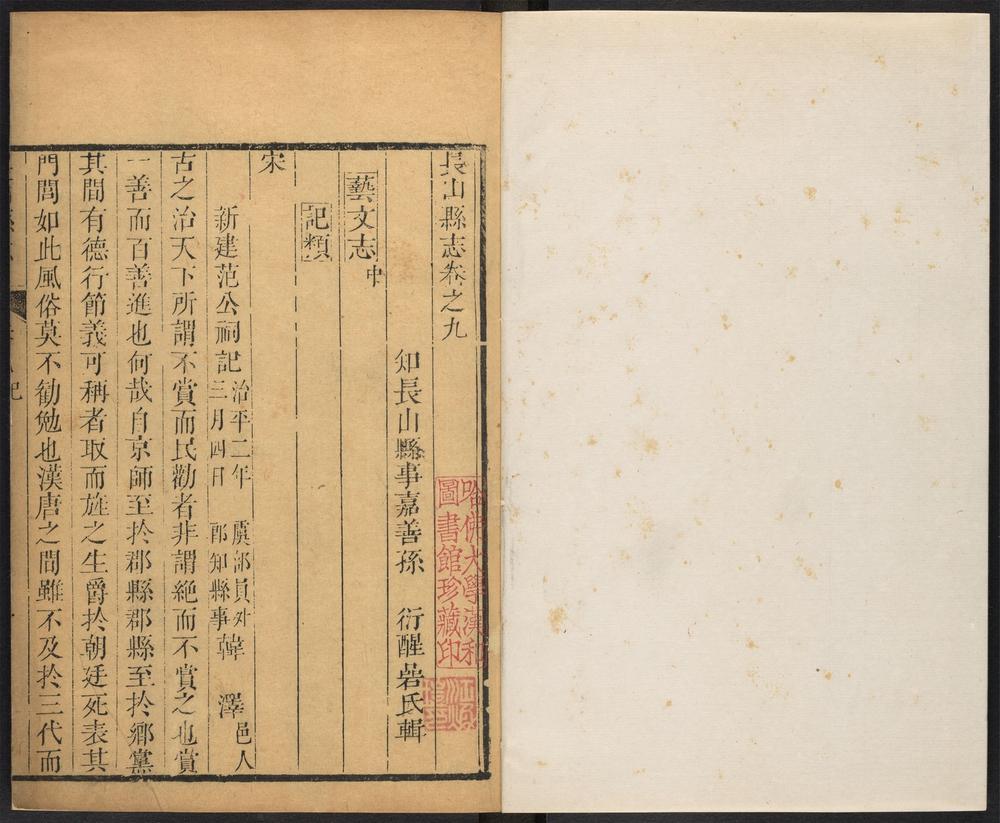 長山縣志卷之九
知長山縣事嘉善孫衍醒嵒氏輯
藝文志中
記類
宋
新建范公祠記治平二年三月四日虞部員外郎知縣事韓澤邑人
古之治天下所謂不賞而民勸者非謂絶而不賞之也賞
一善而百善進也何哉自京師至於郡縣郡縣至於鄉黨
其間有德行節義可稱者取而旌之生爵於朝廷死表其
門閭如此風俗莫不勸勉也漢唐之間雖不及於三代而
哈佛大學漢和
圖書館珍藏印